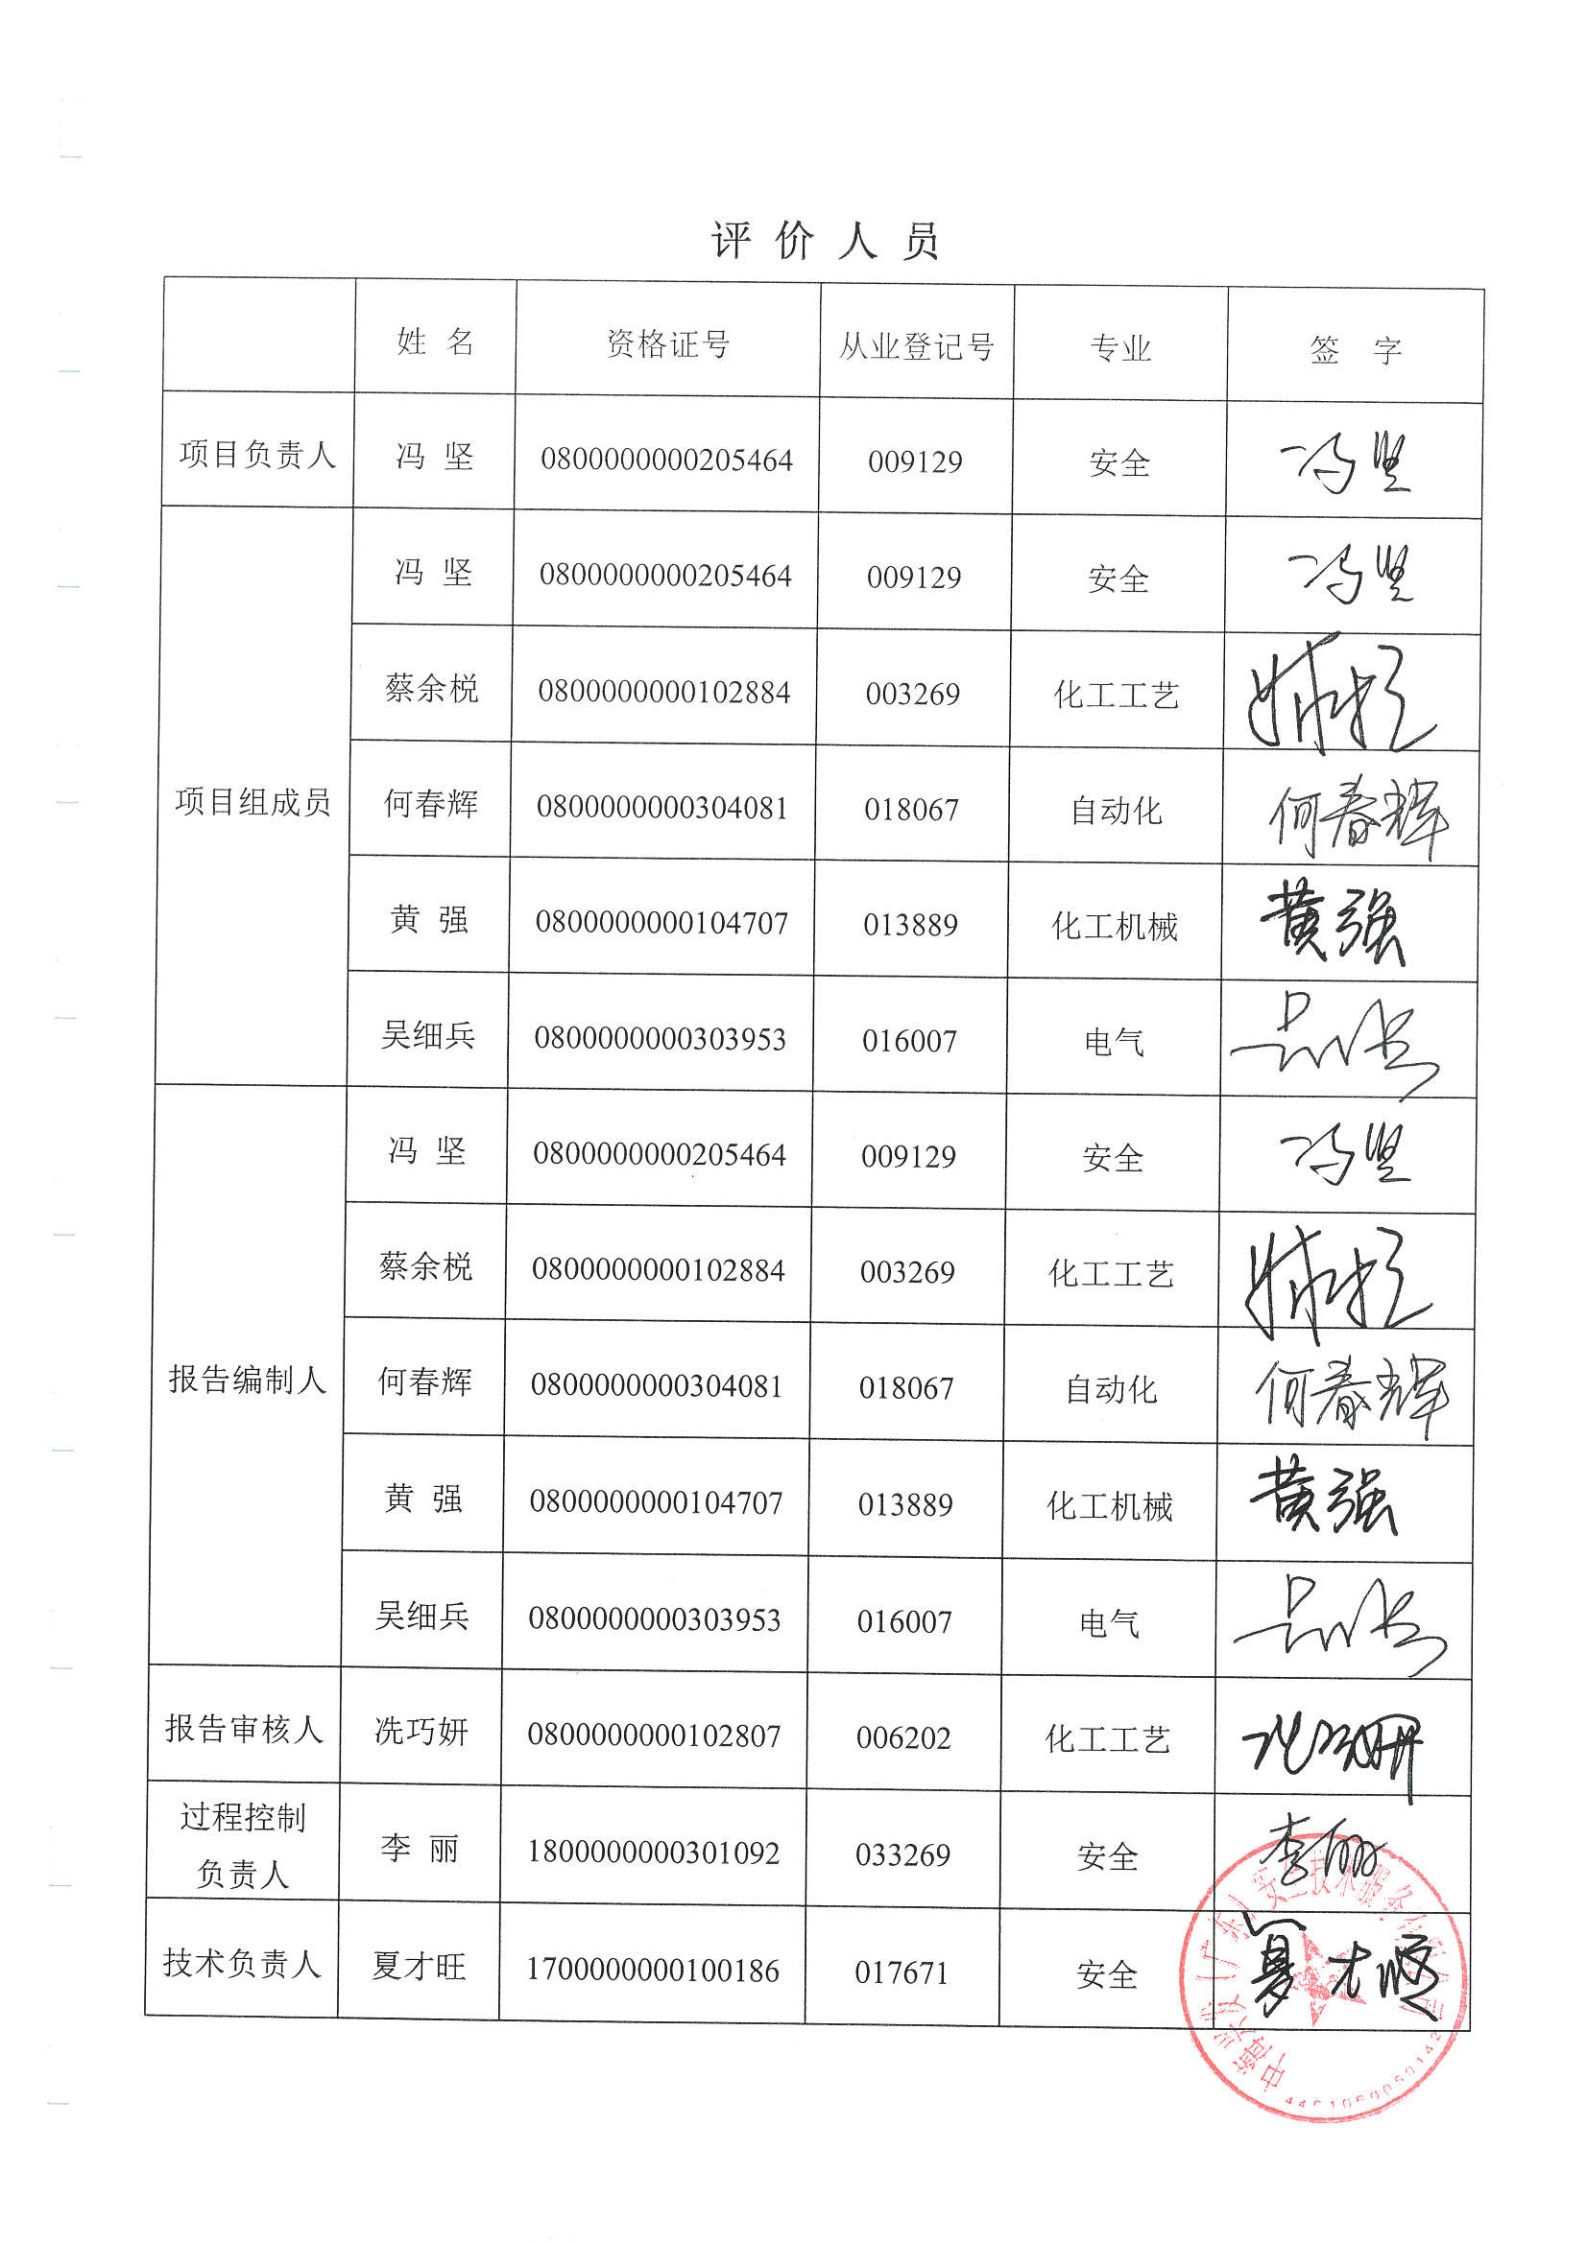 评价人员
姓 名 资格证号 从业登记号 专业 签 字
项目负责人 冯 坚 0800000000205464 009129 安全 冯坚
项目组成员 冯 坚 0800000000205464 009129 安全 冯坚
蔡余棁 0800000000102884 003269 化工工艺
何春辉 0800000000304081 018067 自动化 何春辉
黄 强 0800000000104707 013889 化工机械 黄强
吴细兵 0800000000303953 016007 电气
报告编制人 冯 坚 0800000000205464 009129 安全 冯坚
蔡余棁 0800000000102884 003269 化工工艺
何春辉 0800000000304081 018067 自动化 何春辉
黄 强 0800000000104707 013889 化工机械 黄强
吴细兵 0800000000303953 016007 电气
报告审核人 冼巧妍 0800000000102807 006202 化工工艺
过程控制
负责人 李 丽 1800000000301092 033269 安全 李丽
技术负责人 夏才旺 1700000000100186 017671 安全 夏才旺